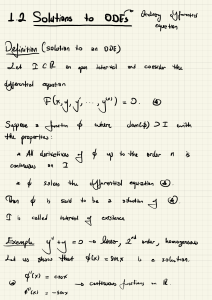 1.2 Solutions to ODEs
Ordinary differential
equation
Definition (solution to an ODE)
Let I ⊂ R an open interval and consider the
differential equation
F(x, y, y', ..., y⁽ⁿ⁾) = 0.
Suppose a function φ where dom(φ) ⊃ I with
the properties:
All derivatives of φ up to the order n is
continuous on I
φ solves the differential equation
Then φ is said to be a solution of
I is called interval of existence
Example y'' + y = 0 → linear, 2nd order, homogeneous
Let us show that φ(x) = sinx is a solution.
φ'(x) = cosx
φ''(x) = -sinx → continuous functions in R.